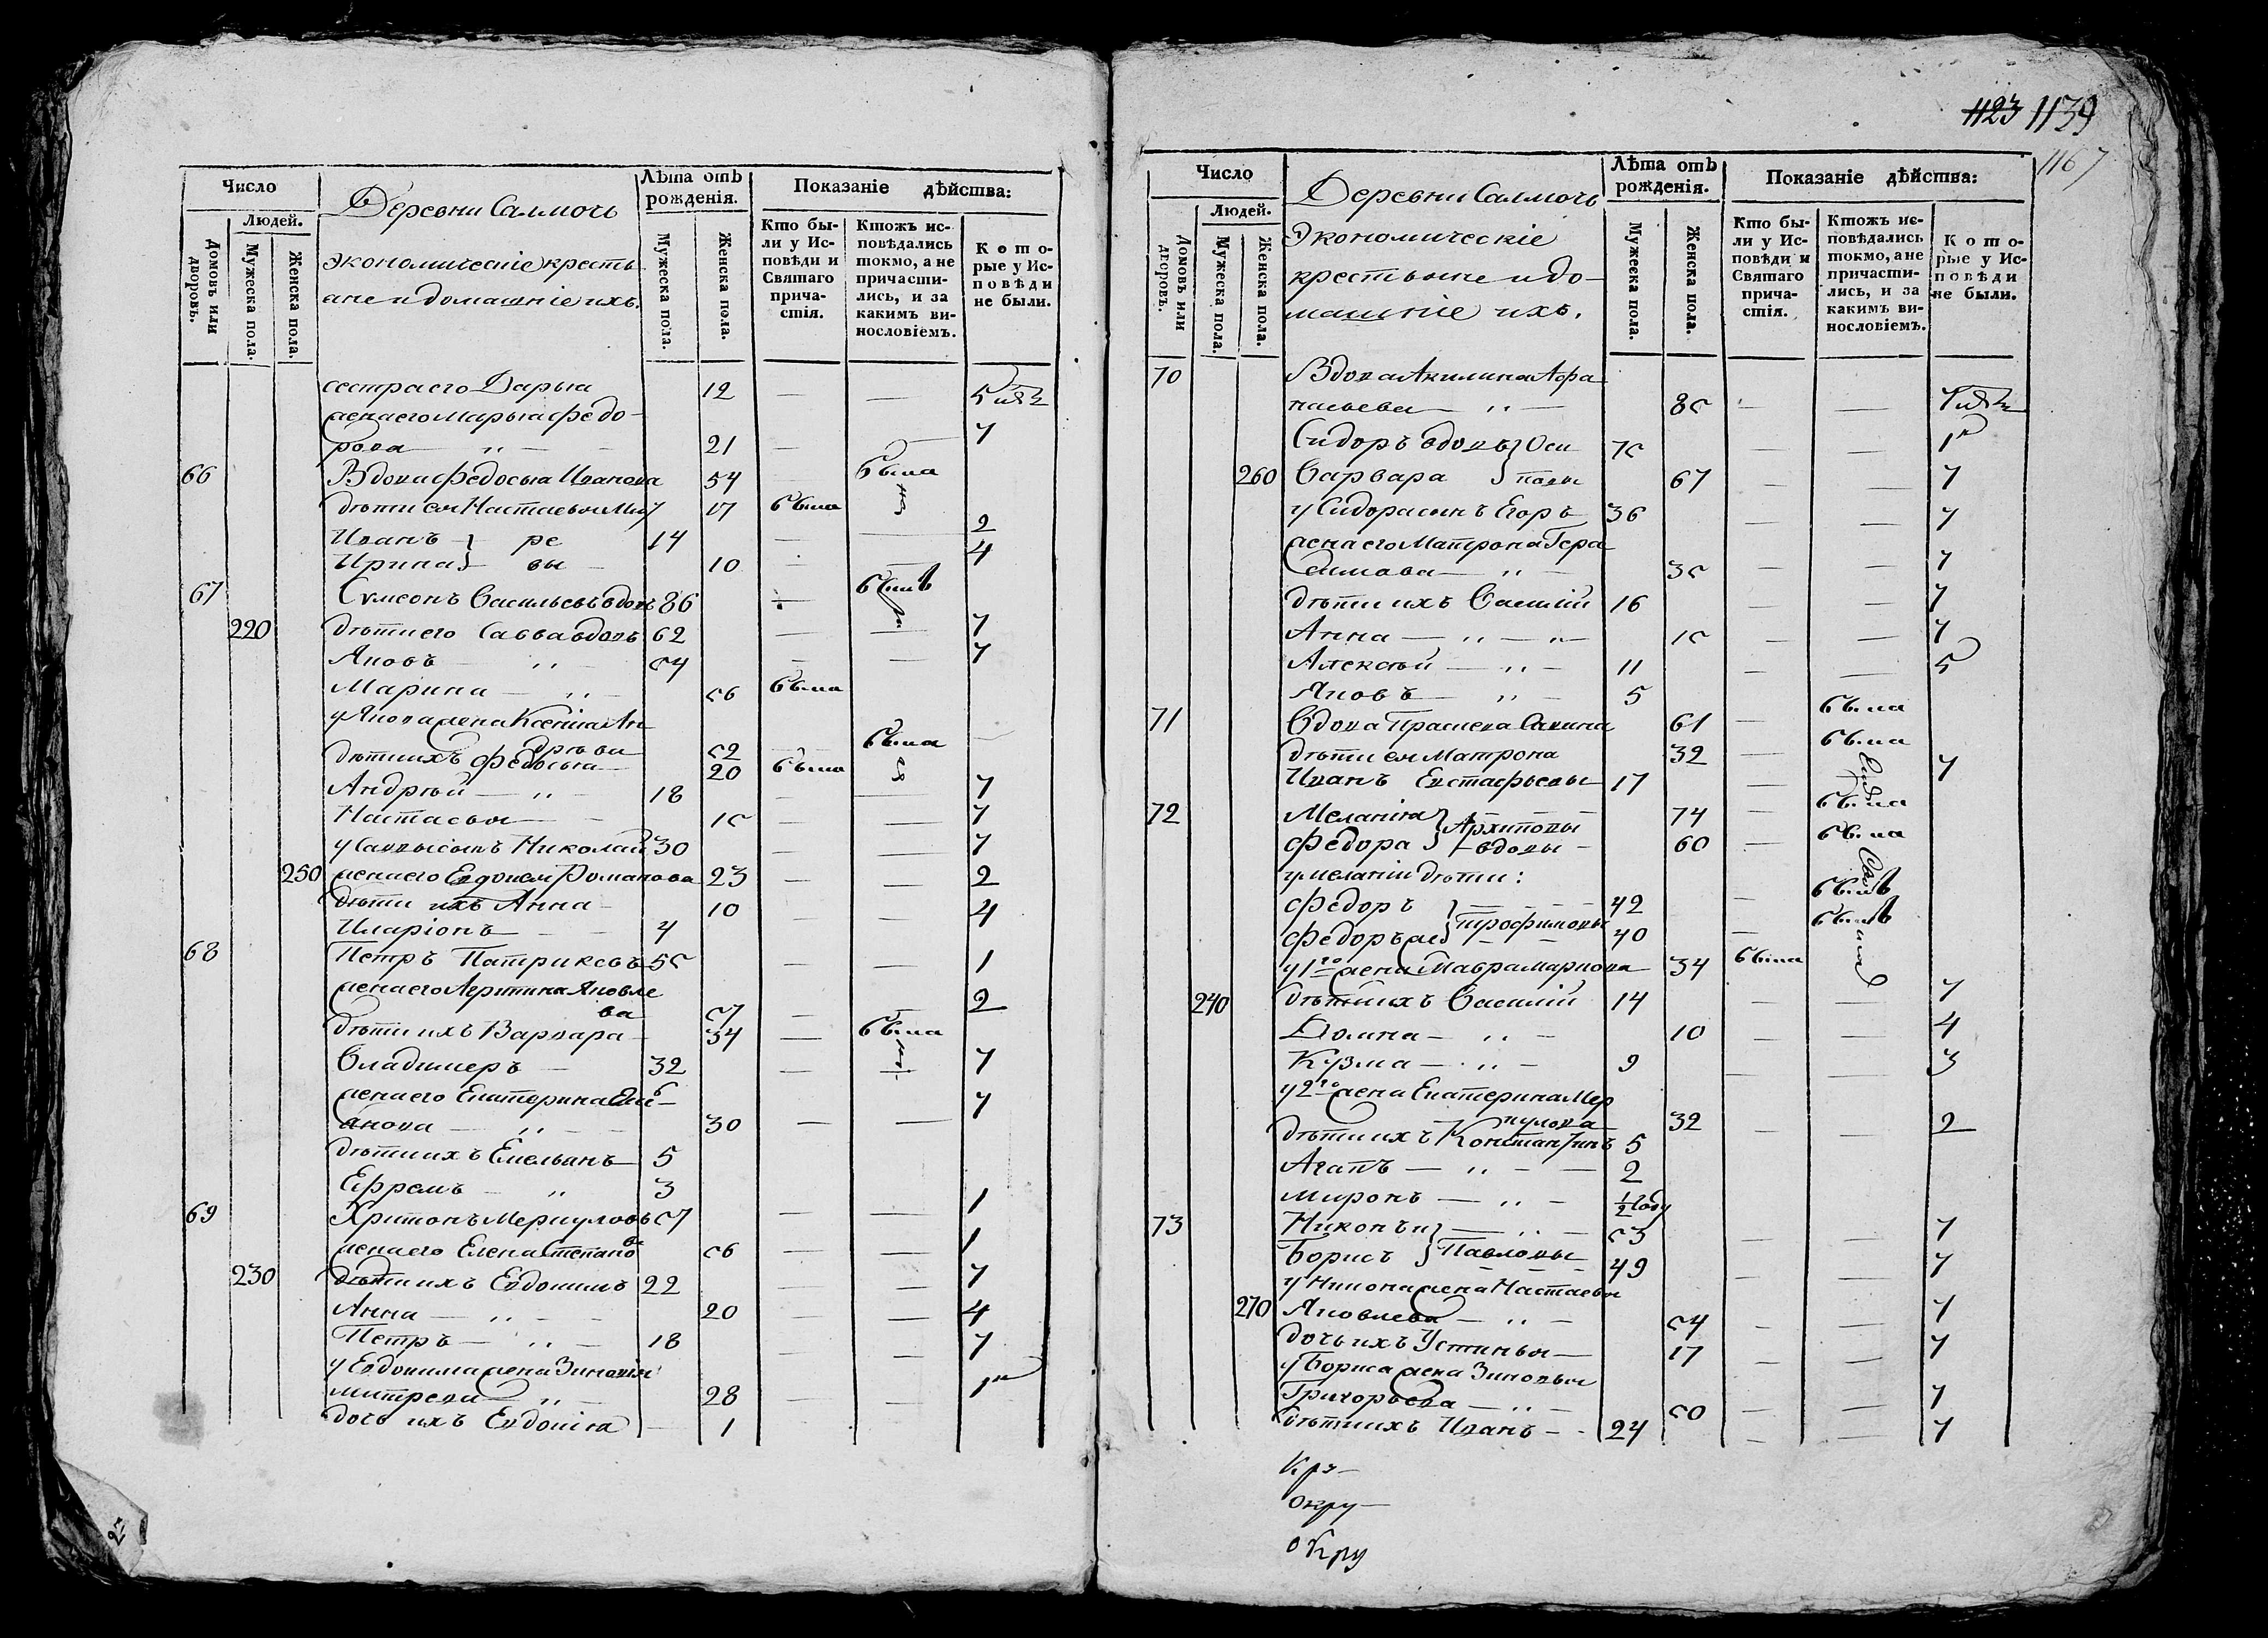 Число
Людей.
Домовъ или дворовъ.
Мужеска пола.
Женска пола.
Деревни Салмочь
экономическіе кресть
яне и домашніе ихъ.
Лѣта отъ рожденія.
Мужеска пола.
Женска пола.
Показаніе дѣйства:
Кто бы-
ли у Ис-
повѣди и
Святаго
прича-
стія.
Ктожъ ис-
повѣдались
токмо, а не
причасти-
лись, и за
какимъ ви-
нословіемъ.
Кото-
рые у Ис-
повѣди
не были.
сестра его Дарья 12 — —
жена его Марья Федо-
рова — 21 —
66 Вдова Федосья Иванова 54 была
дѣти ея Настасья 17 была
Иванъ 14 — — 2
Ирина 10 — — 4
67 Сумеонъ Васильевъ вдовъ 86 — былъ
220 дѣти его Савва вдовъ 62 — —
Яковъ — 54 — —
Марина — 56 была
у Якова жена Ксенія Ан
дрѣева 52 — была
дѣти ихъ Федосья 20 была
Андрѣй — 18 — —
Настасья — 15 — —
у Саввы сынъ Николай 30 — —
250 жена его Евдокея Романова 23 — — 2
дѣти ихъ Анна — 10 — — 4
Иларіонъ — 4
68 Петръ Патрикевъ 55 — — 1
жена его Яковле
ва 57 — 2
дѣти ихъ Варвара — 34 — была
Владимеръ — 32 —
жена его Екатерина
— 30 — —
дѣти ихъ Емельянъ 5
Ефремъ — 3
69 Харитонъ Меркуловъ 57 — — 1
жена его Елена Степано
ва 56 — — 1
230 дѣти ихъ Евдокимъ 22 —
Анна — 20 — — 4
Петръ — 18 — —
у Евдокима жена Зиновія
митрева — 28 — —
дочь ихъ Евдокія — 1
1123 1139
1167
Число
Людей.
Домовъ или дворовъ.
Мужеска пола.
Женска пола.
Деревни Салмочь
Экономическіе
крестьяне и до-
машніе ихъ.
Лѣта отъ рожденія.
Мужеска пола.
Женска пола.
Показаніе дѣйства:
Кто бы-
ли у Ис-
повѣди и
Святаго
прича-
стія.
Ктожъ ис-
повѣдались
токмо, а не
причасти-
лись, и за
какимъ ви-
нословіемъ.
Кото-
рые у Ис-
повѣди
не были.
70 Вдова Акилина Афа
насьева — 85 — —
Сидоръ вдовъ Оси 75 — —
260 Варвара повы 67 — —
у Сидора сынъ Егоръ 36 — —
жена его Матрона Гера
симова — 35 — —
дѣти ихъ Василій 16 — —
Анна — 15 — —
Алексѣй — 11 — — 5
Яковъ — 5
71 Вдова Прасковья Савина 61 — была
дѣти ея Матрона 32 — была
Иванъ Евстафьевы 17 —
72 Меланія Архиповы 74 — была
Федора вдовы 60 — была
у меланіи дѣти:
Федоръ 42 — былъ
Федоръ же Трофимовы 40 — былъ
у 1го жена Мавра Маркова 34 была
240 дѣти ихъ Василій 14 — —
Домна — 10 — — 4
Кузма — 9 — — 3
у 2го жена Екатерина Мер
кулова 32 — — 2
дѣти ихъ Константинъ 5
Агапъ — 2
миронъ — ½ году
73 Никонъ и 53 — —
Борисъ Павловы 49 — —
у Никона жена Настасья
270 Яковлева — 54 — —
дочь ихъ Устинья — 17 — —
у Бориса жена Зиновья
Григорьева — 50 — —
дѣти ихъ Иванъ — 24 — —
Кру—
окру—
окру